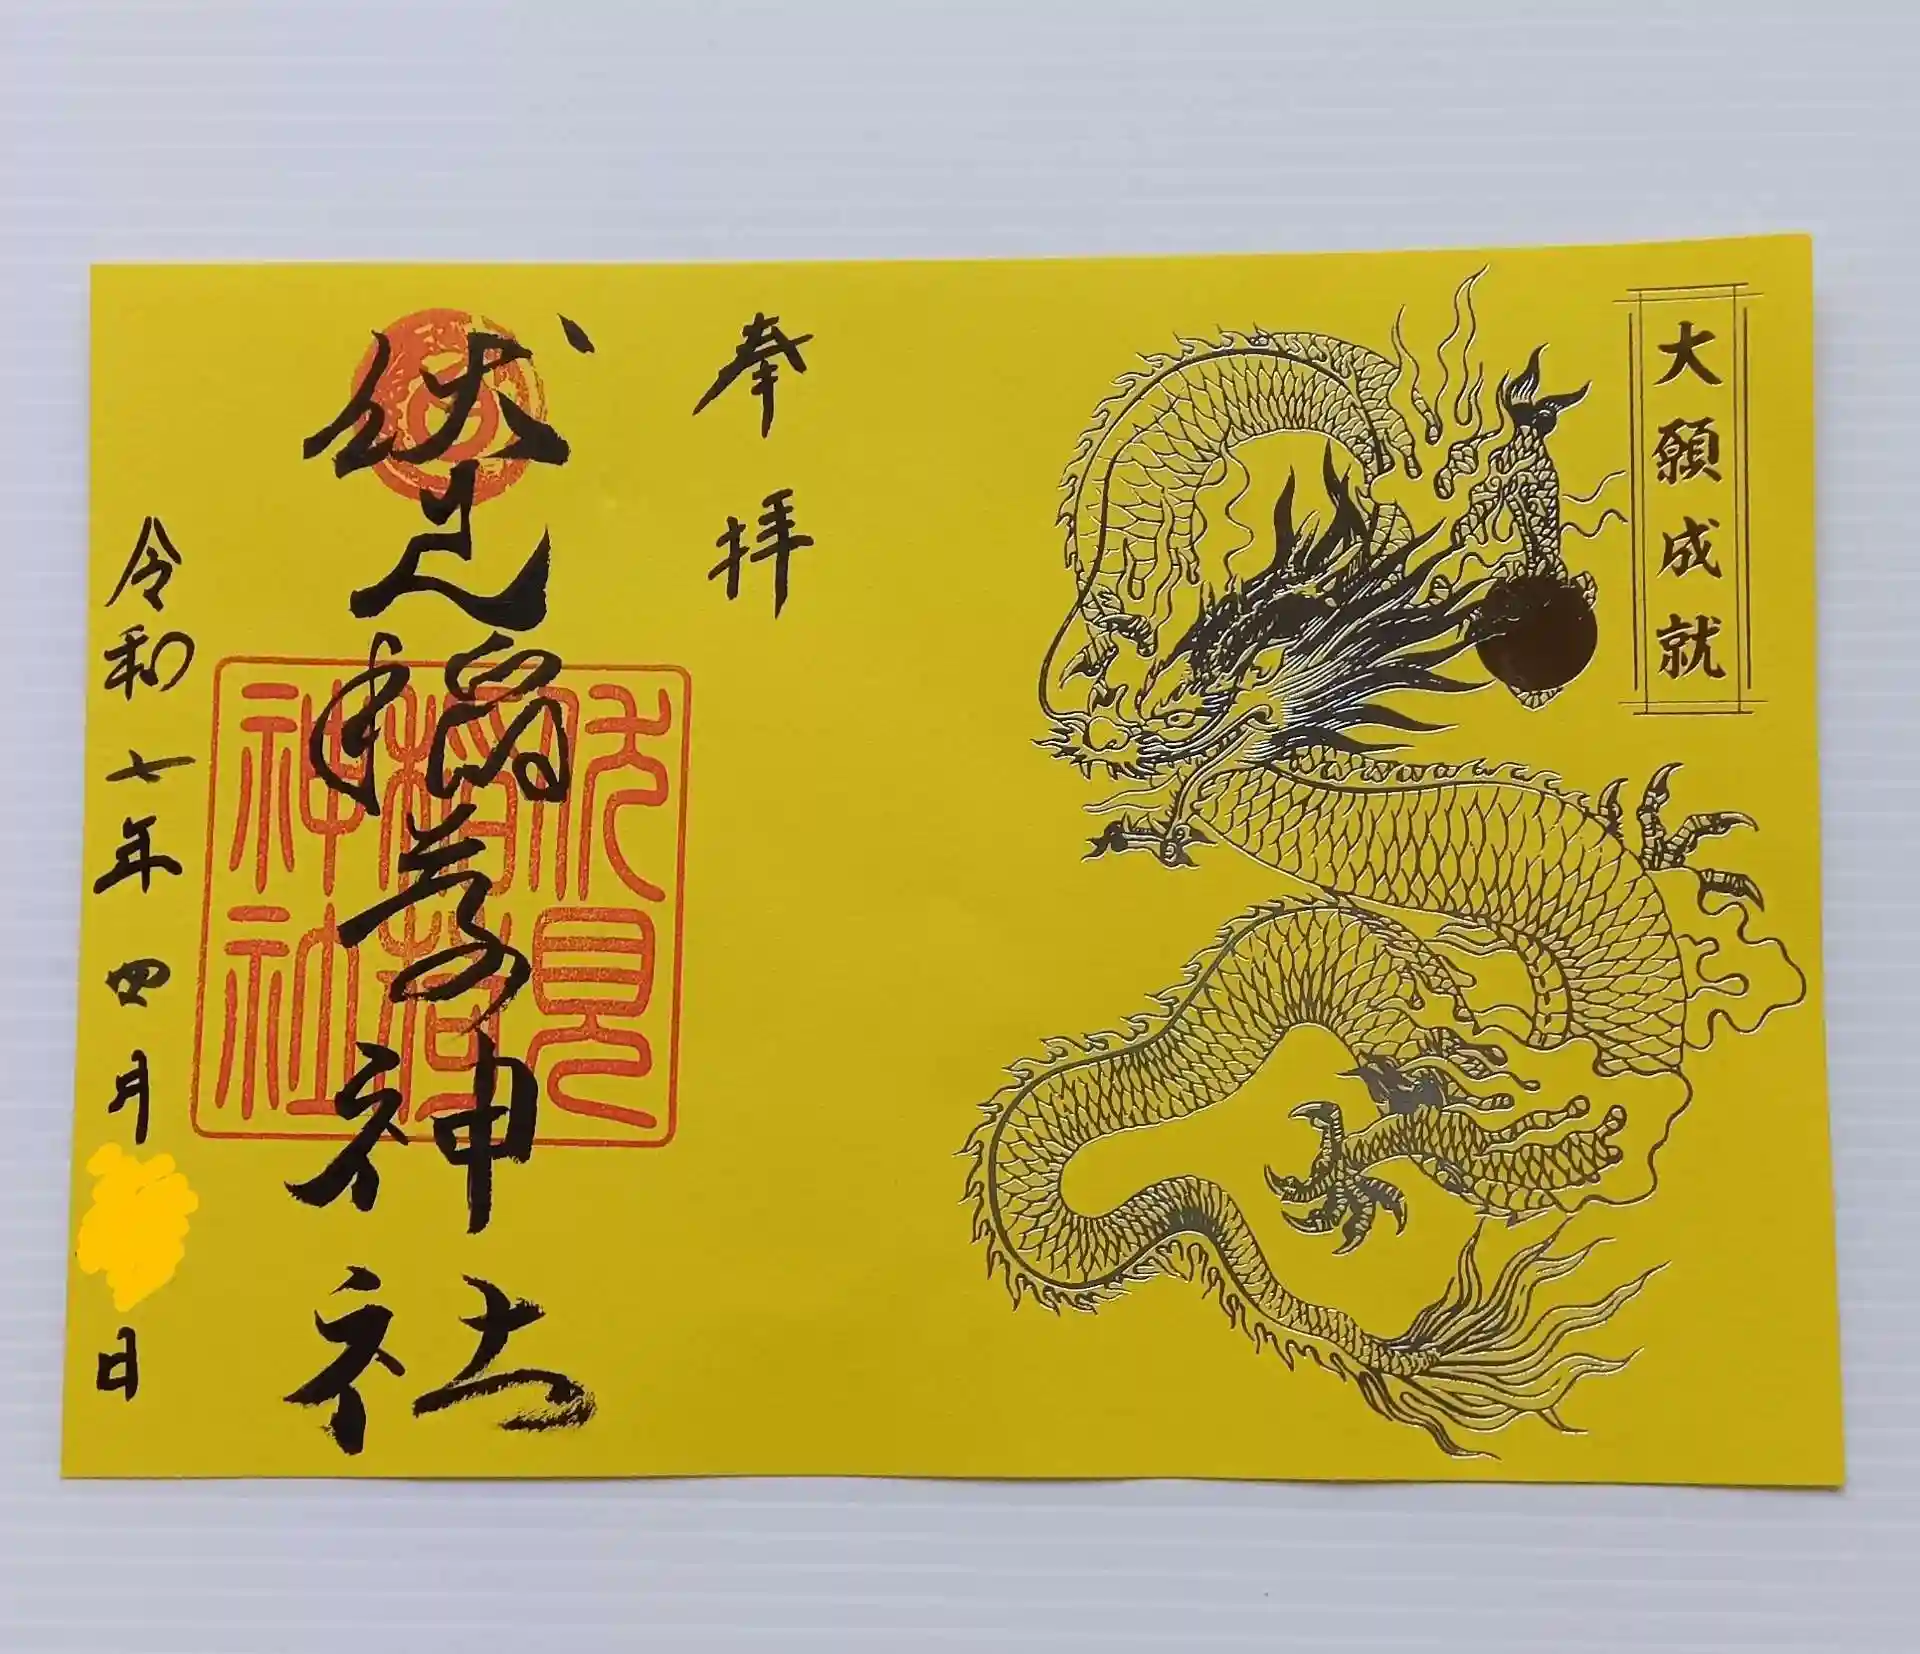 大願成就
奉拝
伏見稲荷神社
伏見
稲荷
神社
令和七年四月日